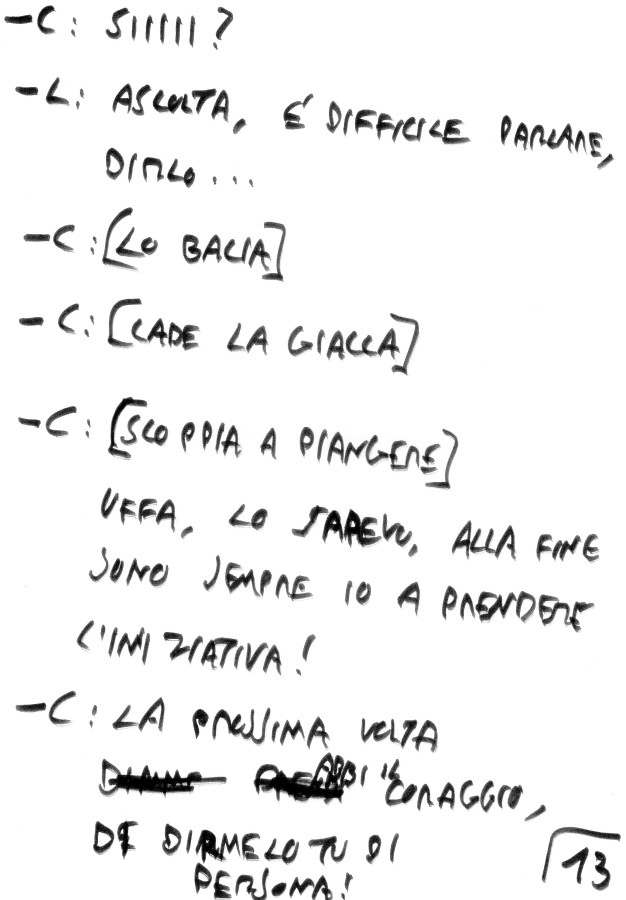 -C: SIIIII?
-L: ASCOLTA, É DIFFICILE PARLARE,
DIRLO...
-C: [LO BACIA]
-C: [CADE LA GIACCA]
-C: [SCOPPIA A PIANGERE]
UFFA, LO SAPEVO, ALLA FINE
SONO SEMPRE IO A PRENDERE
L'INIZIATIVA!
-C: LA PROSSIMA VOLTA
ABBI IL CORAGGIO,
DI DIRMELO TU DI
PERSONA!
13